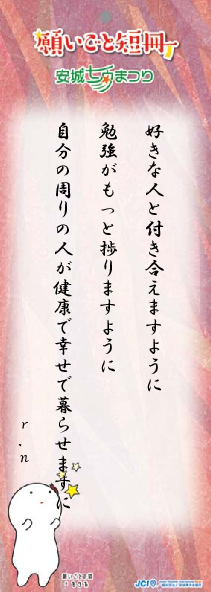 願いごと短冊
安城七夕まつり
好きな人と付き合えますように
勉強がもっと捗りますように
自分の周りの人が健康で幸せで暮らせますに
r.n
願いごと短冊
JCI